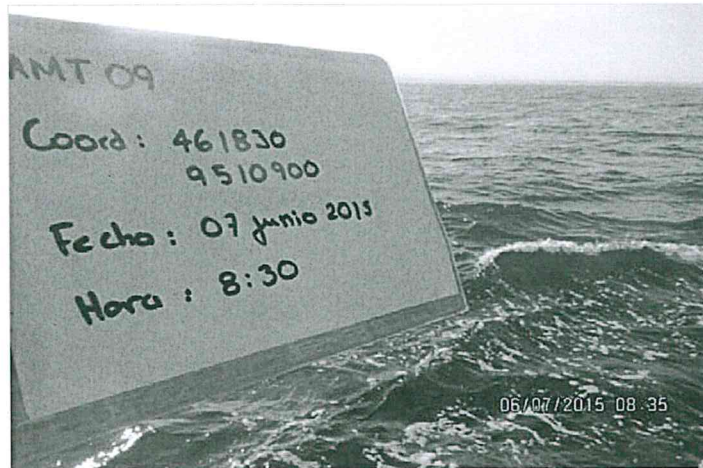 AMT 09
Coord: 461830
9510900
Fecha: 07 junio 2015
Hora: 8:30
06/07/2015 08:35